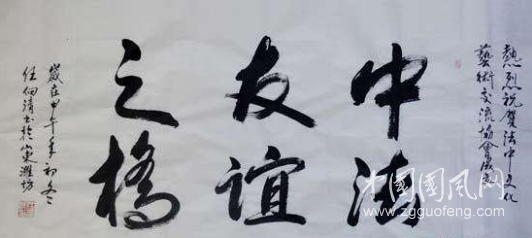 熱烈祝賀法中文化
藝術交流協會成立
中法
友誼
之橋
歲在甲午年初冬
任伯清书於山東濰坊
中国国风网
www.zgguofeng.com